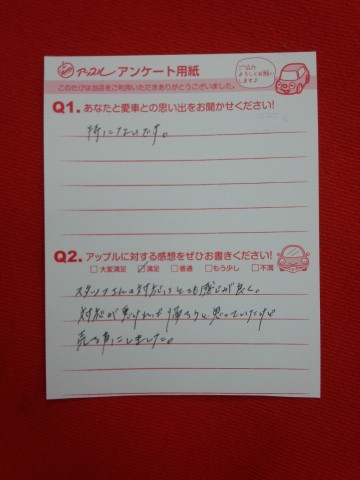 アップル アンケート用紙
ご協力
よろしくお願い
します♪
このたびは当店をご利用いただきありがとうございました。
Q1. あなたと愛車との思い出をお聞かせください!
特にないです。
Q2. アップルに対する感想をぜひお書きください!
□大変満足 ☑満足 □普通 □もう少し □不満
スタッフさんの対応はとても感じが良く。
対応が悪ければ帰ろうと思っていたけど
売る事にしました。